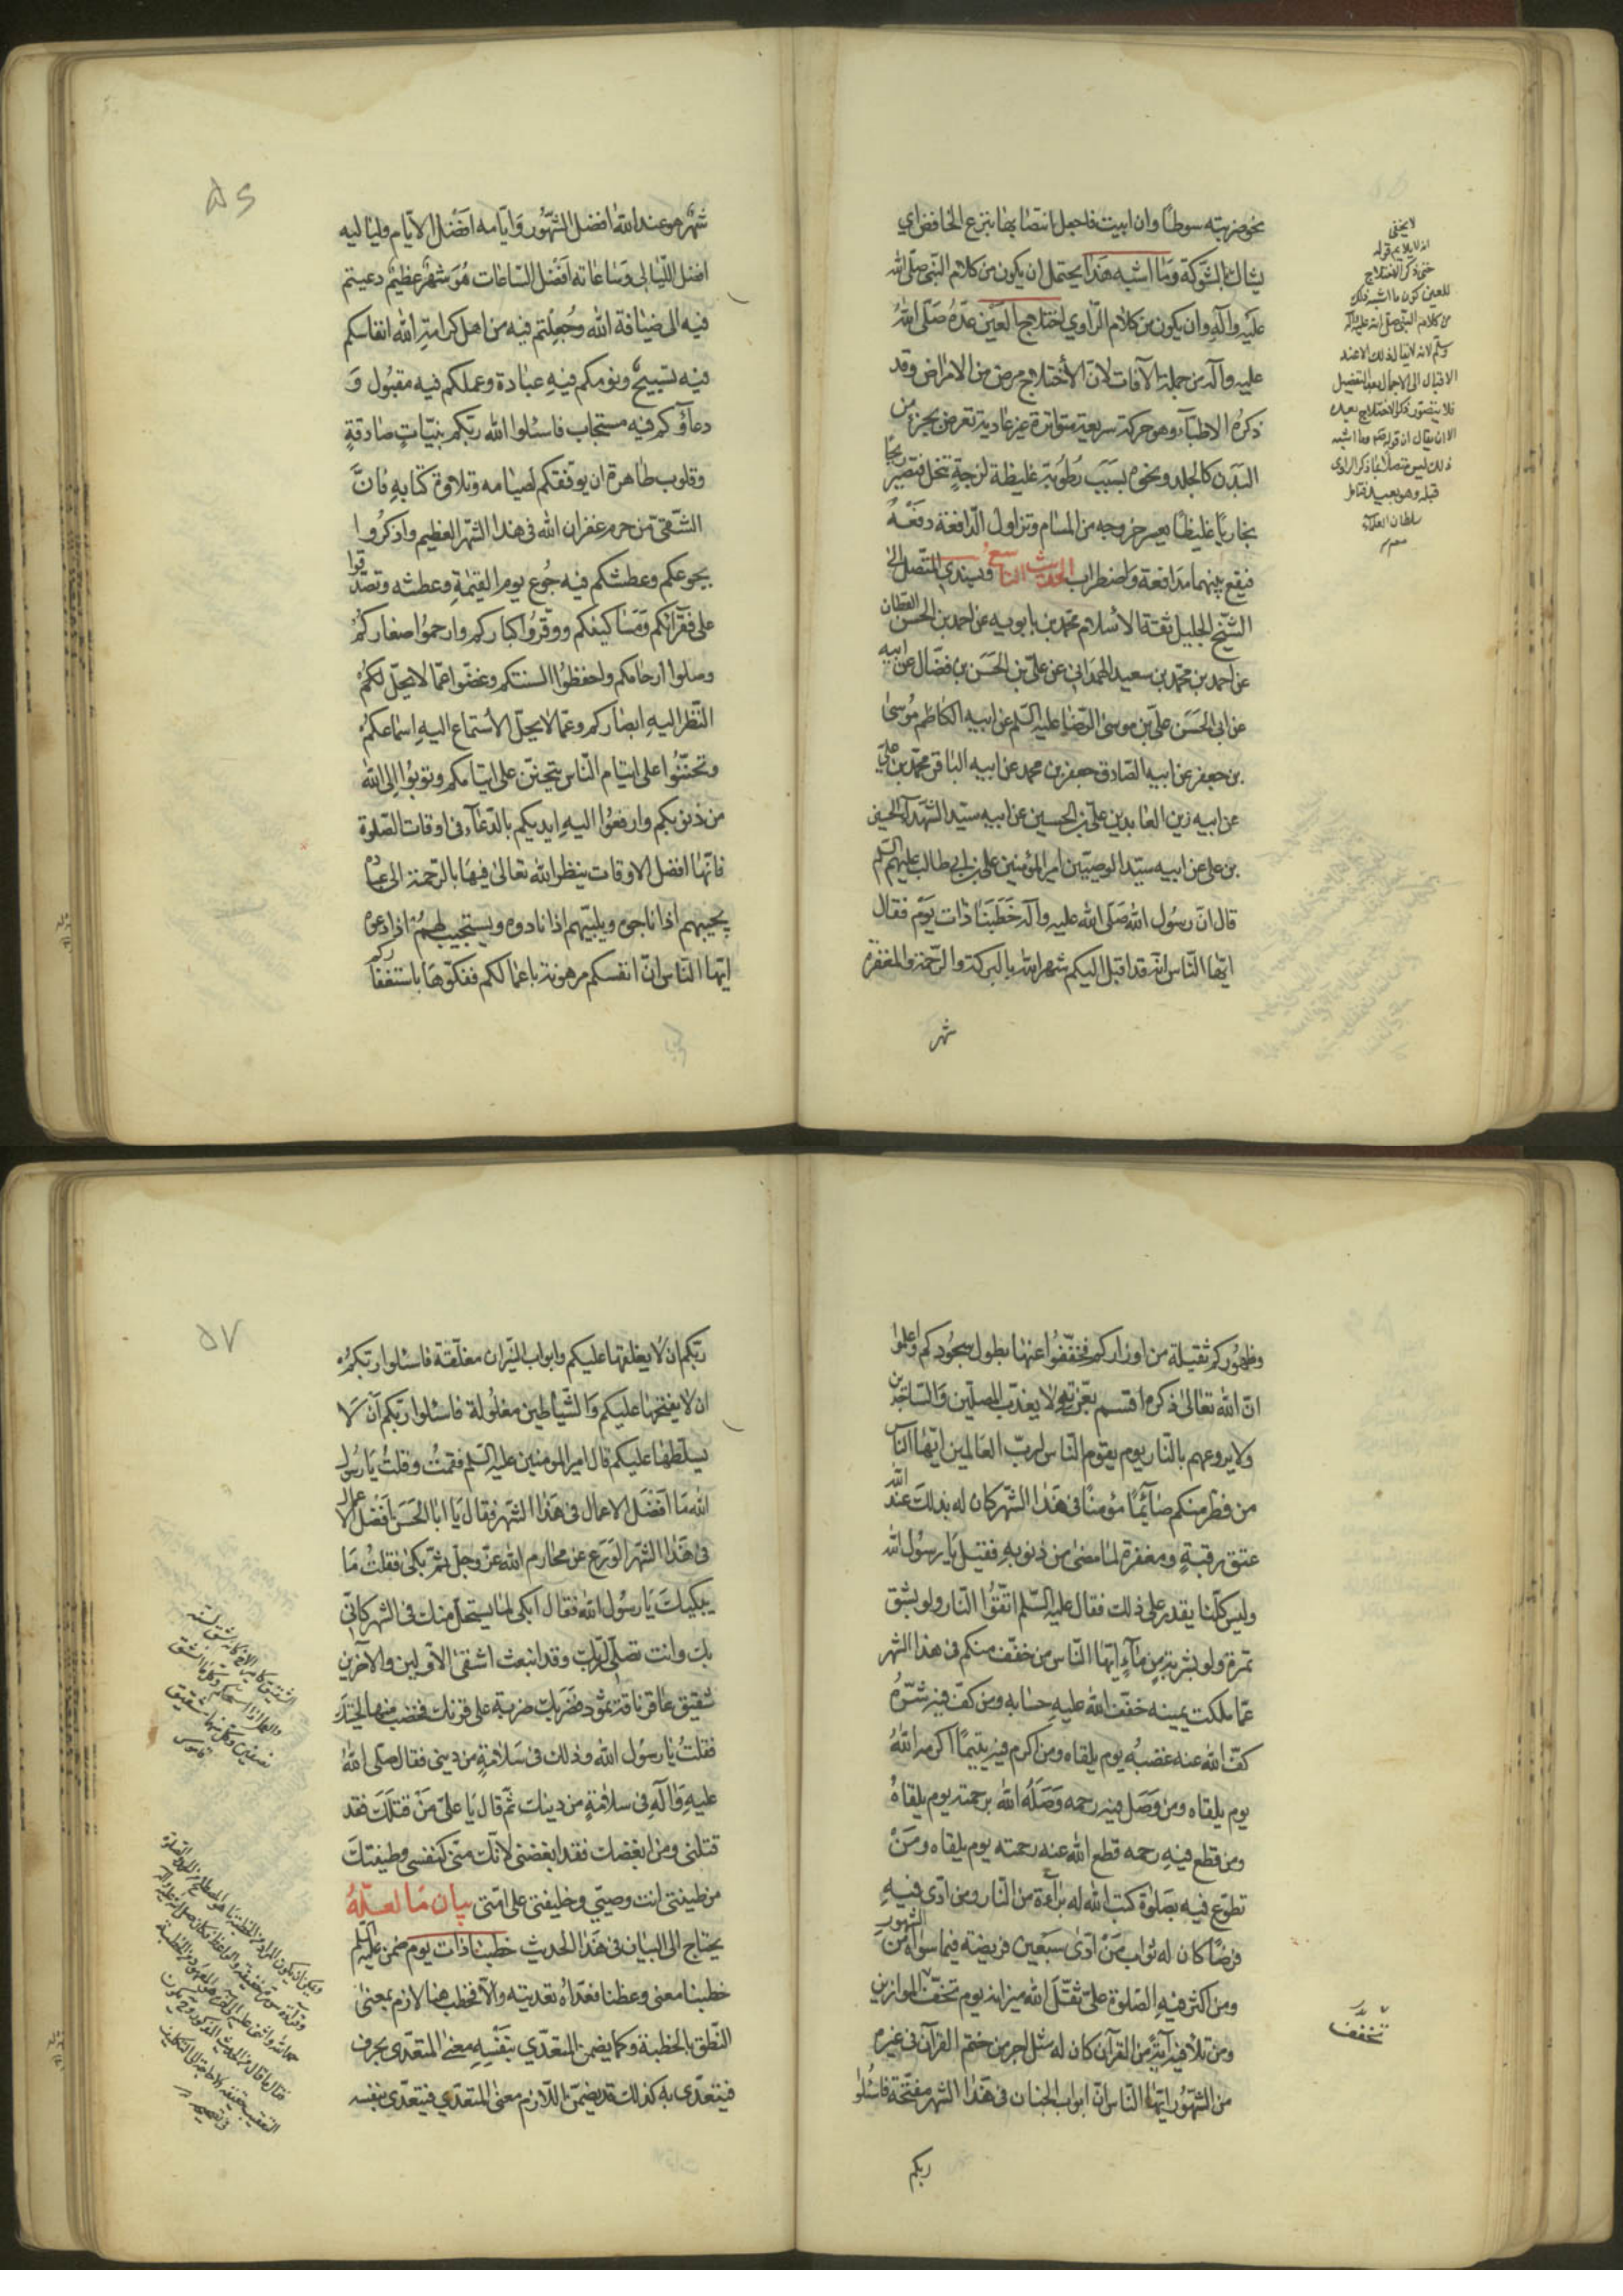 نحو ضربته سوطا وان ابيت فاجعل انتصابها بنزع الخافض اى
يشاك بالشوكة وما اشبه هذا يحتمل ان يكون من كلام النبى صلى الله
عليه وآله وان يكون من كلام الراوي اختلاج العين عده صلى الله
عليه وآله من جملة الآفات لان الأختلاج مرض من الامراض وقد
ذكره الاطباء وهو حركة سريعة متواترة غير عادية تعرض بجزء من
البدن كالجلد ونحوه بسبب رطوبة غليظة لزجة تنحل فتصير ريحا
بخاريا غليظا يعسر خروجه من المسام وتزاول الدافعة دفعه
فيقع بينهما مدافعة واضطراب الحديث التاسع وبسندى المتصل الى
الشيخ الجليل ثقة الأسلام محمد بن بابويه عن احمد بن الحسن القطان
عن احمد بن محمد بن سعيد الهمدانى عن على بن الحسن بن فضال عن ابيه
عن ابى الحسن على بن موسى الرضا عليه السلم عن ابيه الكاظم موسى
بن جعفر عن ابيه الصادق جعفر بن محمد عن ابيه الباقر محمد بن على
عن ابيه زين العابدين على بن الحسين عن ابيه سيد الشهدآء الحسين
بن على عن ابيه سيد الوصيين امير المؤمنين على بن ابى طالب عليهم السلم
قال ان رسول الله صلى الله عليه وآله خطبنا ذات يوم فقال
ايها الناس انه قد اقبل اليكم شهر الله بالبركة والرحمة والمغفرة
شهر
لا يخفى
للعين كون ما اشبه ذلك
من كلام النبى صلى الله عليه وآله
قبله وهو بعيد فتامل
سلطان العلماء
۵۶
شهر هو عند الله افضل الشهور وايامه افضل الايام ولياليه
افضل الليالى وساعاته افضل الساعات هو شهر عظيم دعيتم
فيه الى ضيافة الله وجعلتم فيه من اهل كرامة الله انفاسكم
فيه تسبيح ونومكم فيه عبادة وعملكم فيه مقبول و
دعآؤكم فيه مستجاب فاسئلوا الله ربكم بنيات صادقة
وقلوب طاهرة ان يوفقكم لصيامه وتلاوة كتابه فان
الشقى من حرم غفران الله فى هذا الشهر العظيم واذكروا
بجوعكم وعطشكم فيه جوع يوم القيمة وعطشه وتصدقوا
على فقرآئكم ومساكينكم ووقروا كباركم وارحموا صغاركم
وصلوا ارحامكم واحفظوا السنتكم وغضوا عما لا يحل لكم
النظر اليه ابصاركم وعما لا يحل الأستماع اليه اسماعكم
وتحننوا على ايتام الناس يتحنن على ايتامكم وتوبوا الى الله
من ذنوبكم وارفعوا اليه ايديكم بالدعآء فى اوقات الصلوة
فانها افضل الاوقات ينظر الله تعالى فيها بالرحمة الى عباده
يجيبهم اذا ناجوه ويلبيهم اذا نادوه ويستجيب لهم اذا دعوه
ايها الناس ان انفسكم مرهونة باعمالكم ففكوها باستغفاركم
وظهوركم ثقيلة من اوزاركم فخففوا عنها بطول سجودكم واعلموا
ان الله تعالى ذكره اقسم بعزته ان لا يعذب المصلين والساجدين
ولا يروعهم بالنار يوم يقوم الناس لرب العالمين ايها الناس
من فطر منكم صآئما مؤمنا فى هذا الشهر كان له بذلك عند الله
عتق رقبة ومغفرة لما مضى من ذنوبه فقيل يا رسول الله
وليس كلنا يقدر على ذلك فقال عليه السلم اتقوا النار ولو بشق
تمرة ولو بشربة من مآء ايها الناس من خفف منكم فى هذا الشهر
عما ملكت يمينه خفف الله عليه حسابه ومن كف فيه شره
كف الله عنه غضبه يوم يلقاه ومن اكرم فيه يتيما اكرمه الله
يوم يلقاه ومن وصل فيه رحمه وصله الله برحمته يوم يلقاه
ومن قطع فيه رحمه قطع الله عنه رحمته يوم يلقاه ومن
تطوع فيه بصلوة كتب الله له برآءة من النار ومن ادى فيه
فرضا كان له ثواب من ادى سبعين فريضة فيما سواه من الشهور
ومن اكثر فيه الصلوة على ثقل الله ميزانه يوم تخف الموازين
ومن تلا فيه آية من القرآن كان له مثل اجر من ختم القرآن فى غيره
من الشهور ايها الناس ان ابواب الجنان فى هذا الشهر مفتحة فاسئلوا
ربكم
تخفف
۵۷
ربكم ان لا يغلقها عليكم وابواب النيران مغلقة فاسئلوا ربكم
ان لا يفتحها عليكم والشياطين مغلولة فاسئلوا ربكم ان لا
يسلطها عليكم قال امير المومنين عليه السلم فقمت وقلت يا رسول
الله ما افضل الاعمال فى هذا الشهر فقال يا ابا الحسن افضل الاعمال
فى هذا الشهر الورع عن محارم الله عز وجل ثم بكى فقلت ما
يبكيك يا رسول الله فقال ابكى لما يستحل منك فى الشهر كانى
بك وانت تصلى لربك وقد انبعث اشقى الاولين والآخرين
شقيق عاقر ناقة ثمود فضربك ضربة على قرنك فخضب منها لحيتك
فقلت يا رسول الله وذلك فى سلامة من دينى فقال صلى الله
عليه وآله فى سلامة من دينك ثم قال يا على من قتلك فقد
قتلنى ومن ابغضك فقد ابغضنى لانك منى كنفسى وطينتك
من طينتى انت وصيى وخليفتى على امتى بيان ما لعله
يحتاج الى البيان فى هذا الحديث خطبنا ذات يوم ضمن عليه السلم
خطبنا معنى وعظنا فعداه تعديته والا فخطب هنا لازم بمعنى
النطق بالخطبة وكما يضمن المتعدي بنفسه معنى المتعدى بحرف
فيتعدى به كذلك قد يضمن اللازم معنى المتعدي فيتعدى بنفسه